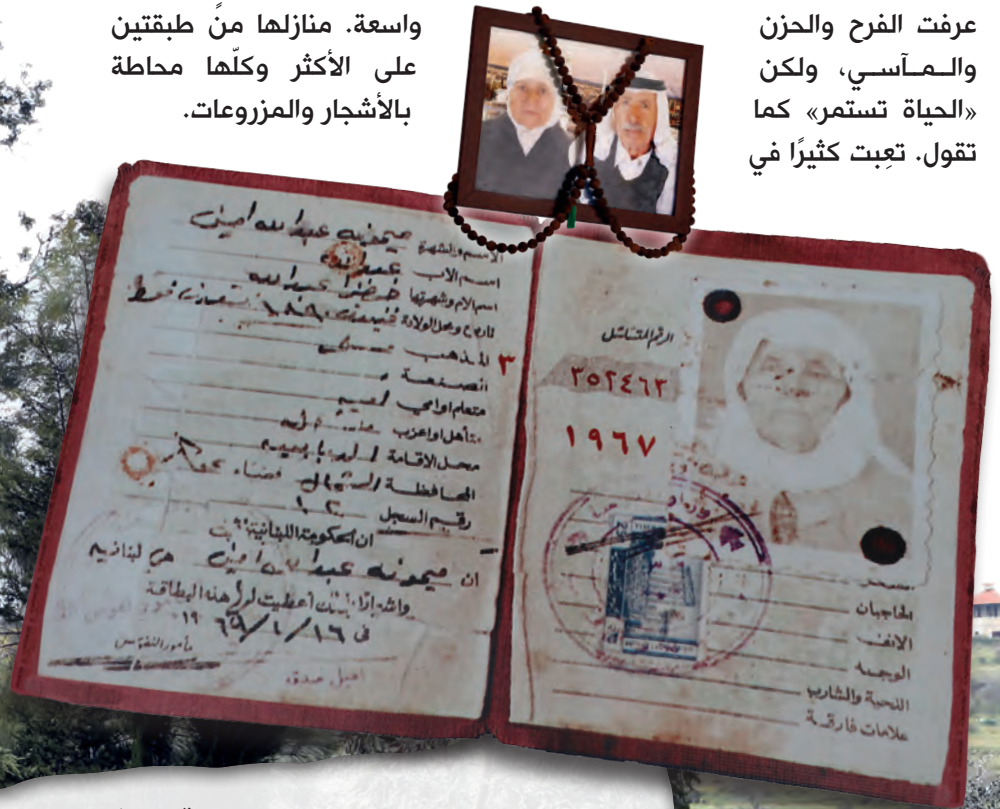 عرفت الفرح والحزن
والـمـآســي، ولكن
«الحياة تستمر» كما
تقول. تعِبت كثيرًا في
واسعة. منازلها منً طبقتين
على الأكثر وكلّها محاطة
بالأشجار والمزروعات.
الرقم المتسلسل
٣٥٢٤٦٣
١٩٦٧
الحاجبان
الانف
الوجه
اللحية والشارب
علامات فارقة
الاسم والشهرة ميمونه عبدالله امين
اسم الاب عبدالله
اسم الام وشهرتها عبدالله
تاريخ ومحل الولادة
المذهب
٣
الصنعة
متعلم او امي
متأهل او اعزب
محل الاقامة
المحافظة الشمال قضاء عكار
رقم السجل ١٢
ان الحكومة اللبنانية
ان ميمونه عبدالله امين هي لبنانيه
اعطيت لها هذه البطاقة
في ١٦/١/٦٩ ١٩
مأمور النفوس